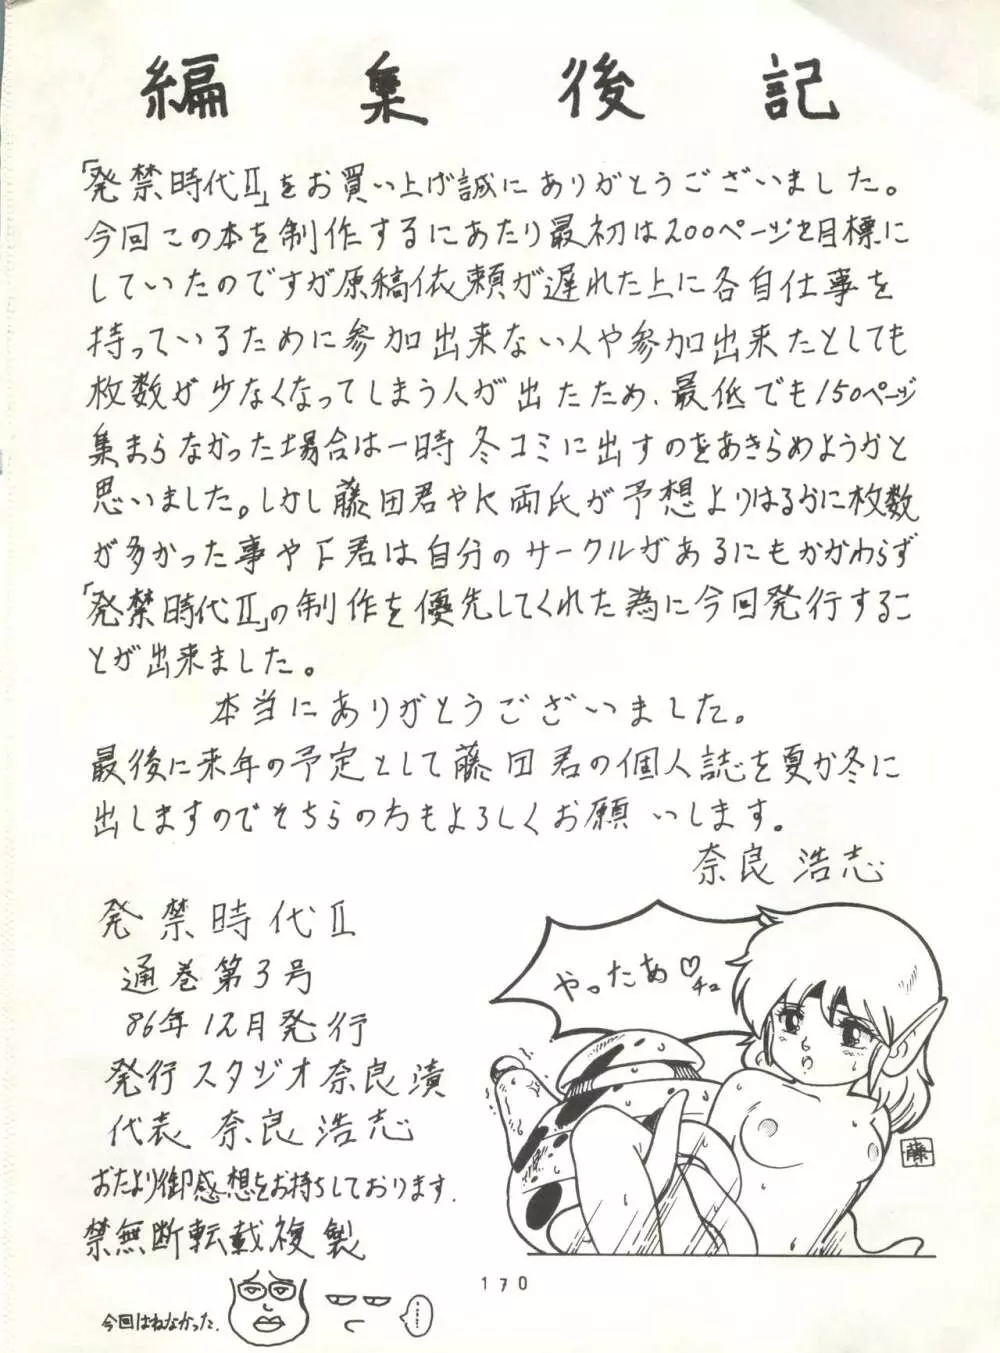 編集後記
「発禁時代Ⅱ」をお買い上げ誠にありがとうございました。
今回この本を制作するにあたり最初は200ページを目標に
していたのですが原稿依頼が遅れた上に各自仕事を
持っているために参加出来ない人や参加出来たとしても
枚数が少なくなってしまう人が出たため、最低でも150ページ
集まらなかった場合は一時冬コミに出すのをあきらめようかと
思いました。しかし藤田君やK両氏が予想よりはるかに枚数
が多かった事やF君は自分のサークルがあるにもかかわらず
「発禁時代Ⅱ」の制作を優先してくれた為に今回発行するこ
とが出来ました。
本当にありがとうございました。
最後に来年の予定として藤田君の個人誌を夏か冬に
出しますのでそちらの方もよろしくお願いします。
奈良浩志
発禁時代Ⅱ
通巻第3号
86年12月発行
発行スタジオ奈良漬
代表 奈良浩志
おたより御感想をお待ちしております.
禁無断転載複製
やったぁ♡チュ
藤
170
今回はねなかった.